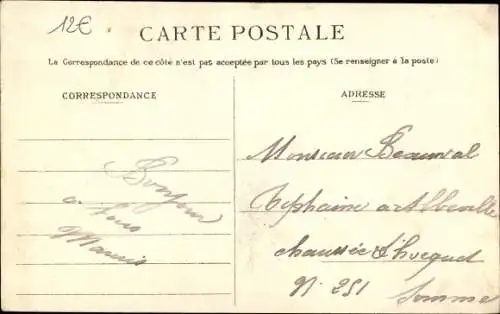 12€
CARTE POSTALE
La Correspondance de ce côté n'est pas acceptée par tous les pays (Se renseigner à la poste)
CORRESPONDANCE
ADRESSE
Bonjour
a tous
Monsieur Beauval
a Abbeville
chaussée d'hocquet
N. 251
Somme